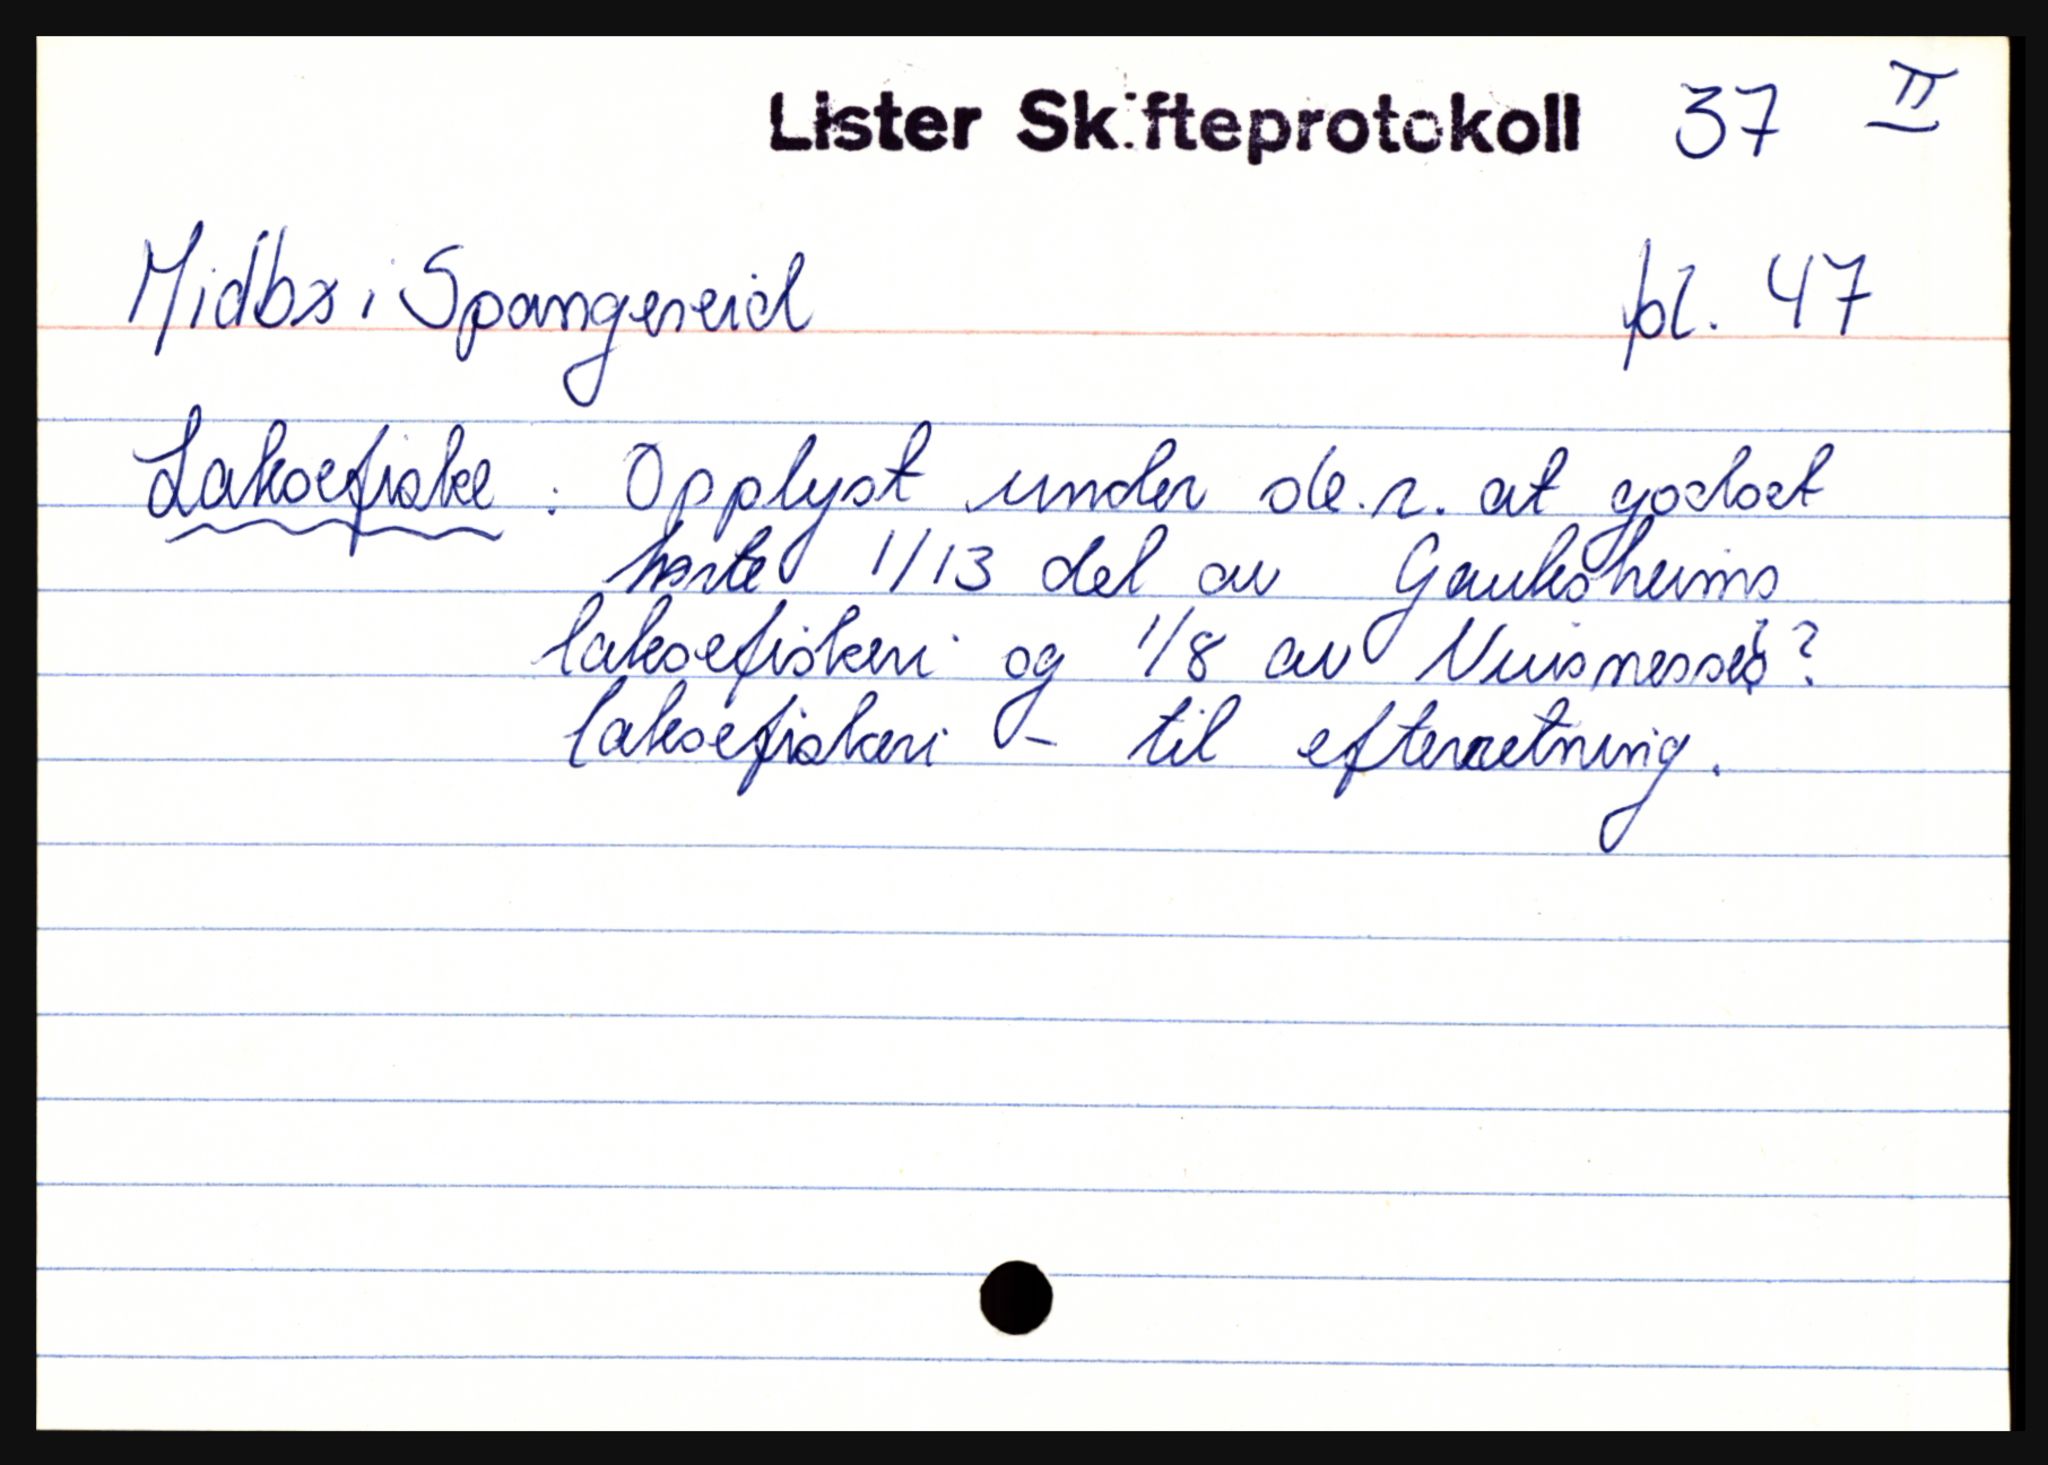 Lister Skifteprotokoll 37 II
Midbø i Spangereid pl. 47
Laksefiske : Opplyst under sk.r. at godset
hørte 1/13 del av Gauksheims
laksefiskeri og 1/8 av
laksefiskeri - til efterretning.